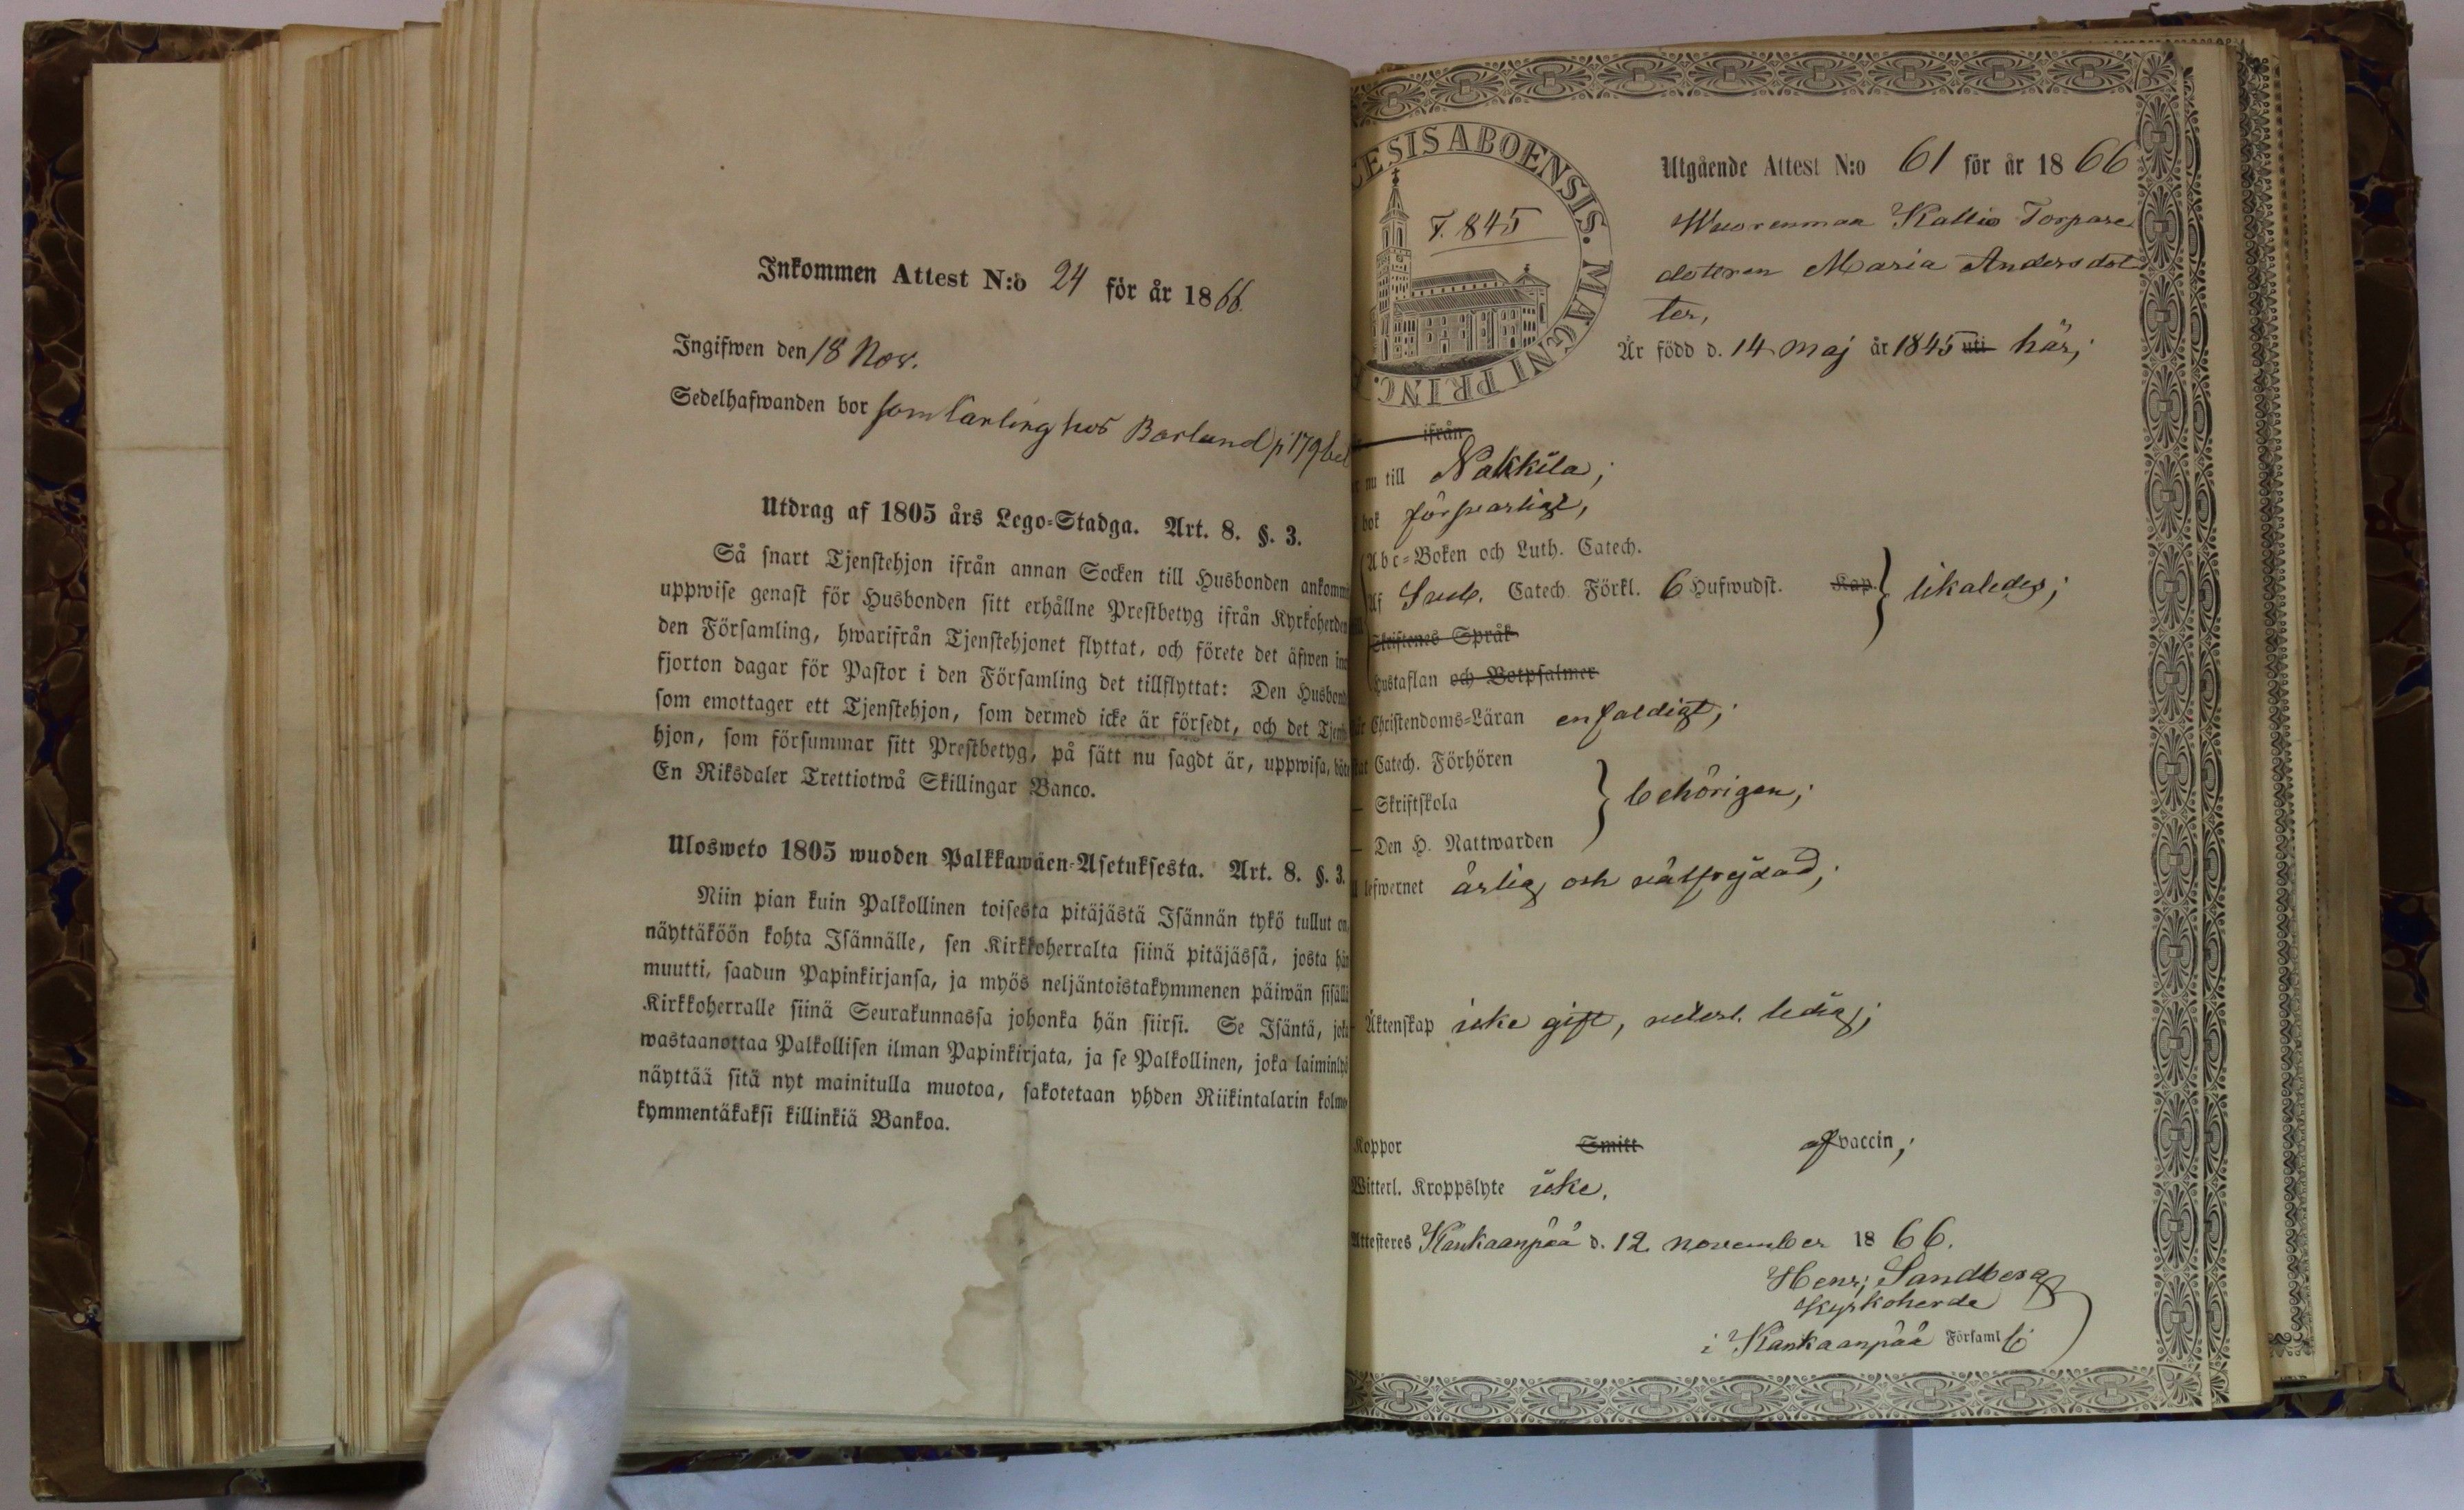 Inkommen Attest N:o 24 för år 1866.
Ingifwen den 18 Nov.
Sedelhafwanden bor som karling hos Borlund p 179
Utdrag af 1805 års Lego-Stadga. Art. 8. §. 3.
Så snart Tjenstehjon ifrån annan Socken till Husbonden ankomm
uppwise genast för Husbonden sitt erhållne Prestbetyg ifrån Kyrkoherden
den Församling, hwarifrån Tjenstehjonet flyttat, och förete det äfwen in
fjorton dagar för Pastor i den Församling det tillflyttat: Den Husbond
som emottager ett Tjenstehjon, som dermed icke är försedt, och det Tjenst
hjon, som försummar sitt Prestbetyg, på sätt nu sagdt är, uppwisa, böte
En Riksdaler Trettiotwå Skillingar Banco.
Ulosweto 1805 wuoden Palkkawäen-Asetuksesta. Art. 8. §. 3.
Niin pian kuin Palkollinen toisesta pitäjästä Isännän tykö tullut on,
näyttäköön kohta Isännälle, sen Kirkkoherralta siinä pitäjässä, josta hän
muutti, saadun Papinkirjansa, ja myös neljäntoistakymmenen päiwän sisällä
Kirkkoherralle siinä Seurakunnassa johonka hän siirsi. Se Isäntä, joka
wastaanottaa Palkollisen ilman Papinkirjata, ja se Palkollinen, joka laiminlyö
näyttää sitä nyt mainitulla muotoa, sakotetaan yhden Riikintalarin kolme
kymmentäkaksi killinkiä Bankoa.
CESIS ABOENSIS. MAGNI PRINC.
F. 845
Utgående Attest N:o 61 för år 1866
Wuorenmaa Kallio Torpare
dottren Maria Andersdot
ter,
Är född d. 14 Maj år 1845 uti här;
ifrån
nu till Nakkila;
bok försvarligt,
Abc-Boken och Luth. Catech.
Af Sveb. Catech. Förkl. 6 Hufwudst. Kap. } likaledes;
Skriftenes Språk
Hustaflan och Botpsalmer
Christendoms-Läran enfaldigt;
Catech. Förhören
– Skriftskola } behörigen;
– Den H. Nattwarden
lefwernet ärlig och välfrejdad;
Äktenskap icke gift, veterl. ledig;
Koppor Smitt af vaccin;
Witterl. Kroppslyte icke.
Attesteres Kankaanpää d. 12 november 1866.
Henr; Sandberg
Kyrkoherde
i Kankaanpää Församl